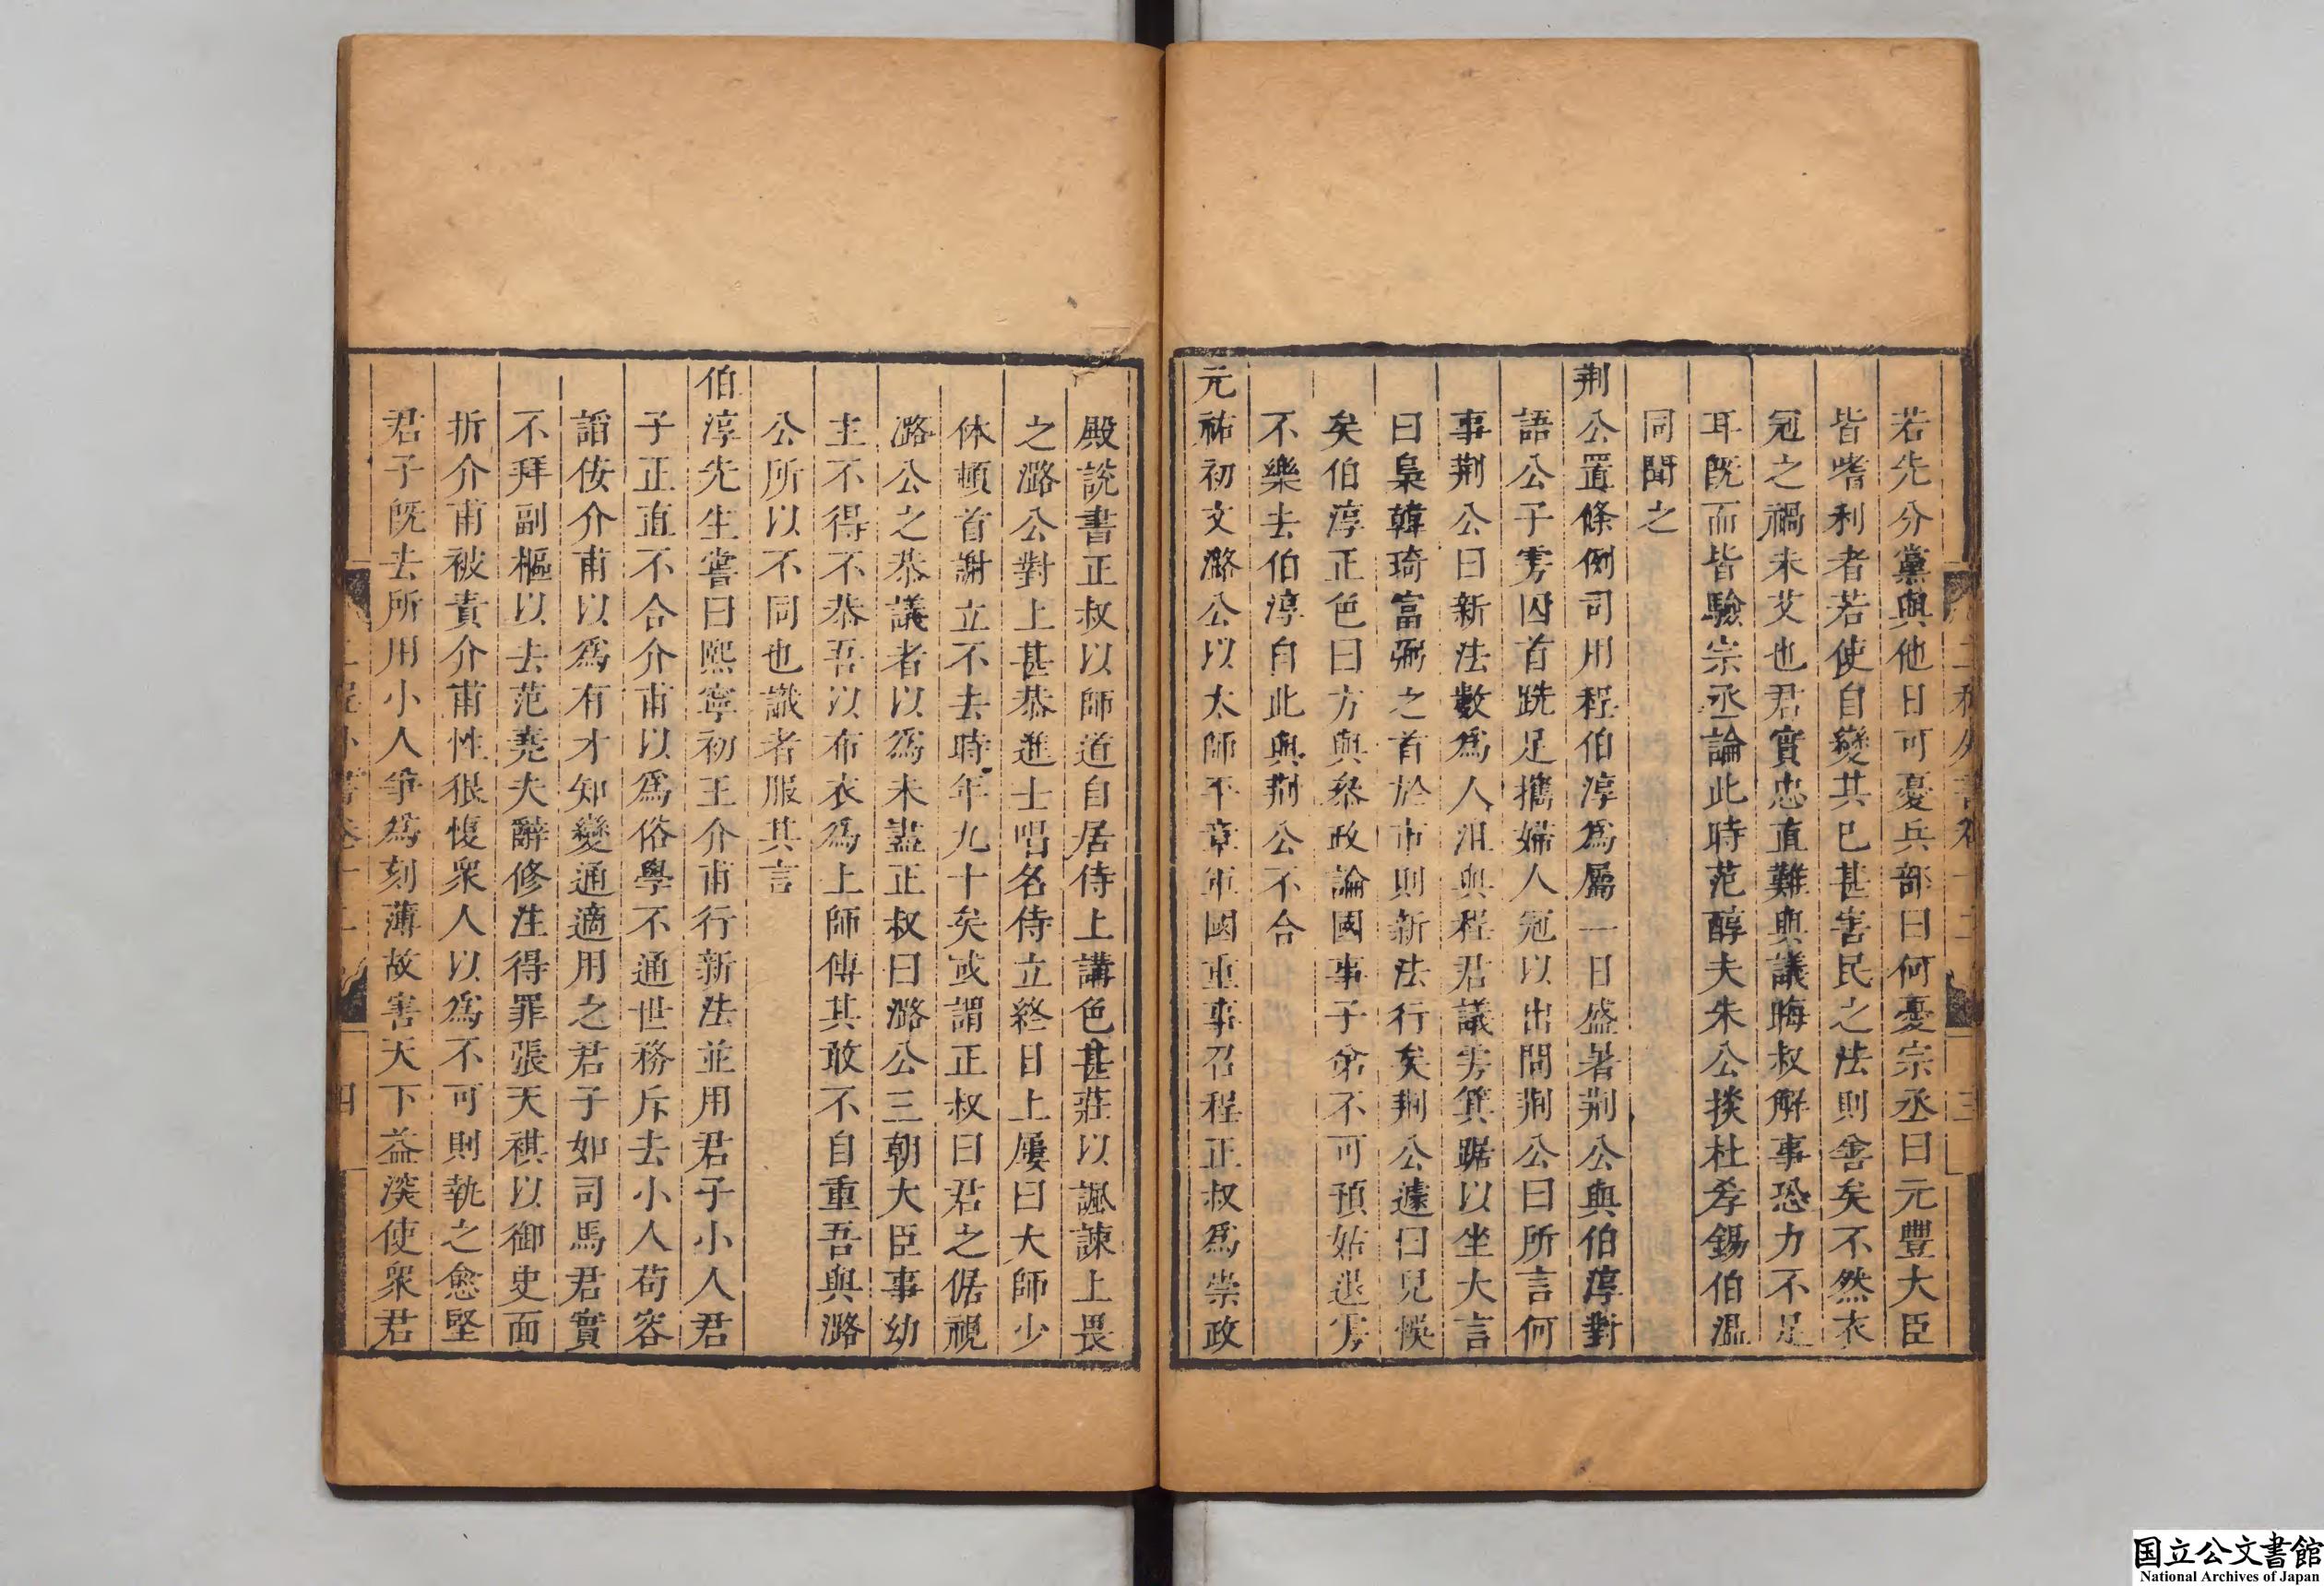 若先分黨與他日可憂兵部曰何憂宗丞曰元豐大臣
皆嗜利者若使自變其已甚害民之法則善矣不然衣
冠之禍未艾也君實忠直難與議晦叔解事恐力不足
耳旣而皆驗宗丞論此時范醇夫朱公掞杜孝錫伯溫
同聞之
荆公置條例司用程伯淳爲屬一日盛暑荆公與伯淳對
語公子雱囚首跣足攜婦人冠以出問荆公曰所言何
事荆公曰新法數爲人沮與程君議雱箕踞以坐大言
曰梟韓琦富弼之首於市則新法行矣荆公遽曰兒悞
矣伯淳正色曰方與叅政論國事子弟不可預姑退雱
不樂去伯淳自此與荆公不合
元祐初文潞公以太師平章軍國重事召程正叔爲崇政
殿說書正叔以師道自居侍上講色甚莊以諷諫上畏
之潞公對上甚恭進士唱名侍立終日上屢曰太師少
休頓首謝立不去時年九十矣或謂正叔曰君之倨視
潞公之恭議者以爲未盡正叔曰潞公三朝大臣事幼
主不得不恭吾以布衣爲上師傅其敢不自重吾與潞
公所以不同也識者服其言
伯淳先生嘗曰熙寧初王介甫行新法並用君子小人君
子正直不合介甫以爲俗學不通世務斥去小人苟容
諂佞介甫以爲有才知變通適用之君子如司馬君實
不拜副樞以去范堯夫辭修注得罪張天祺以御史面
折介甫被責介甫性狠愎衆人以爲不可則執之愈堅
君子旣去所用小人爭爲刻薄故害天下益深使衆君
二程外書卷十二
四
国立公文書館
National Archives of Japan